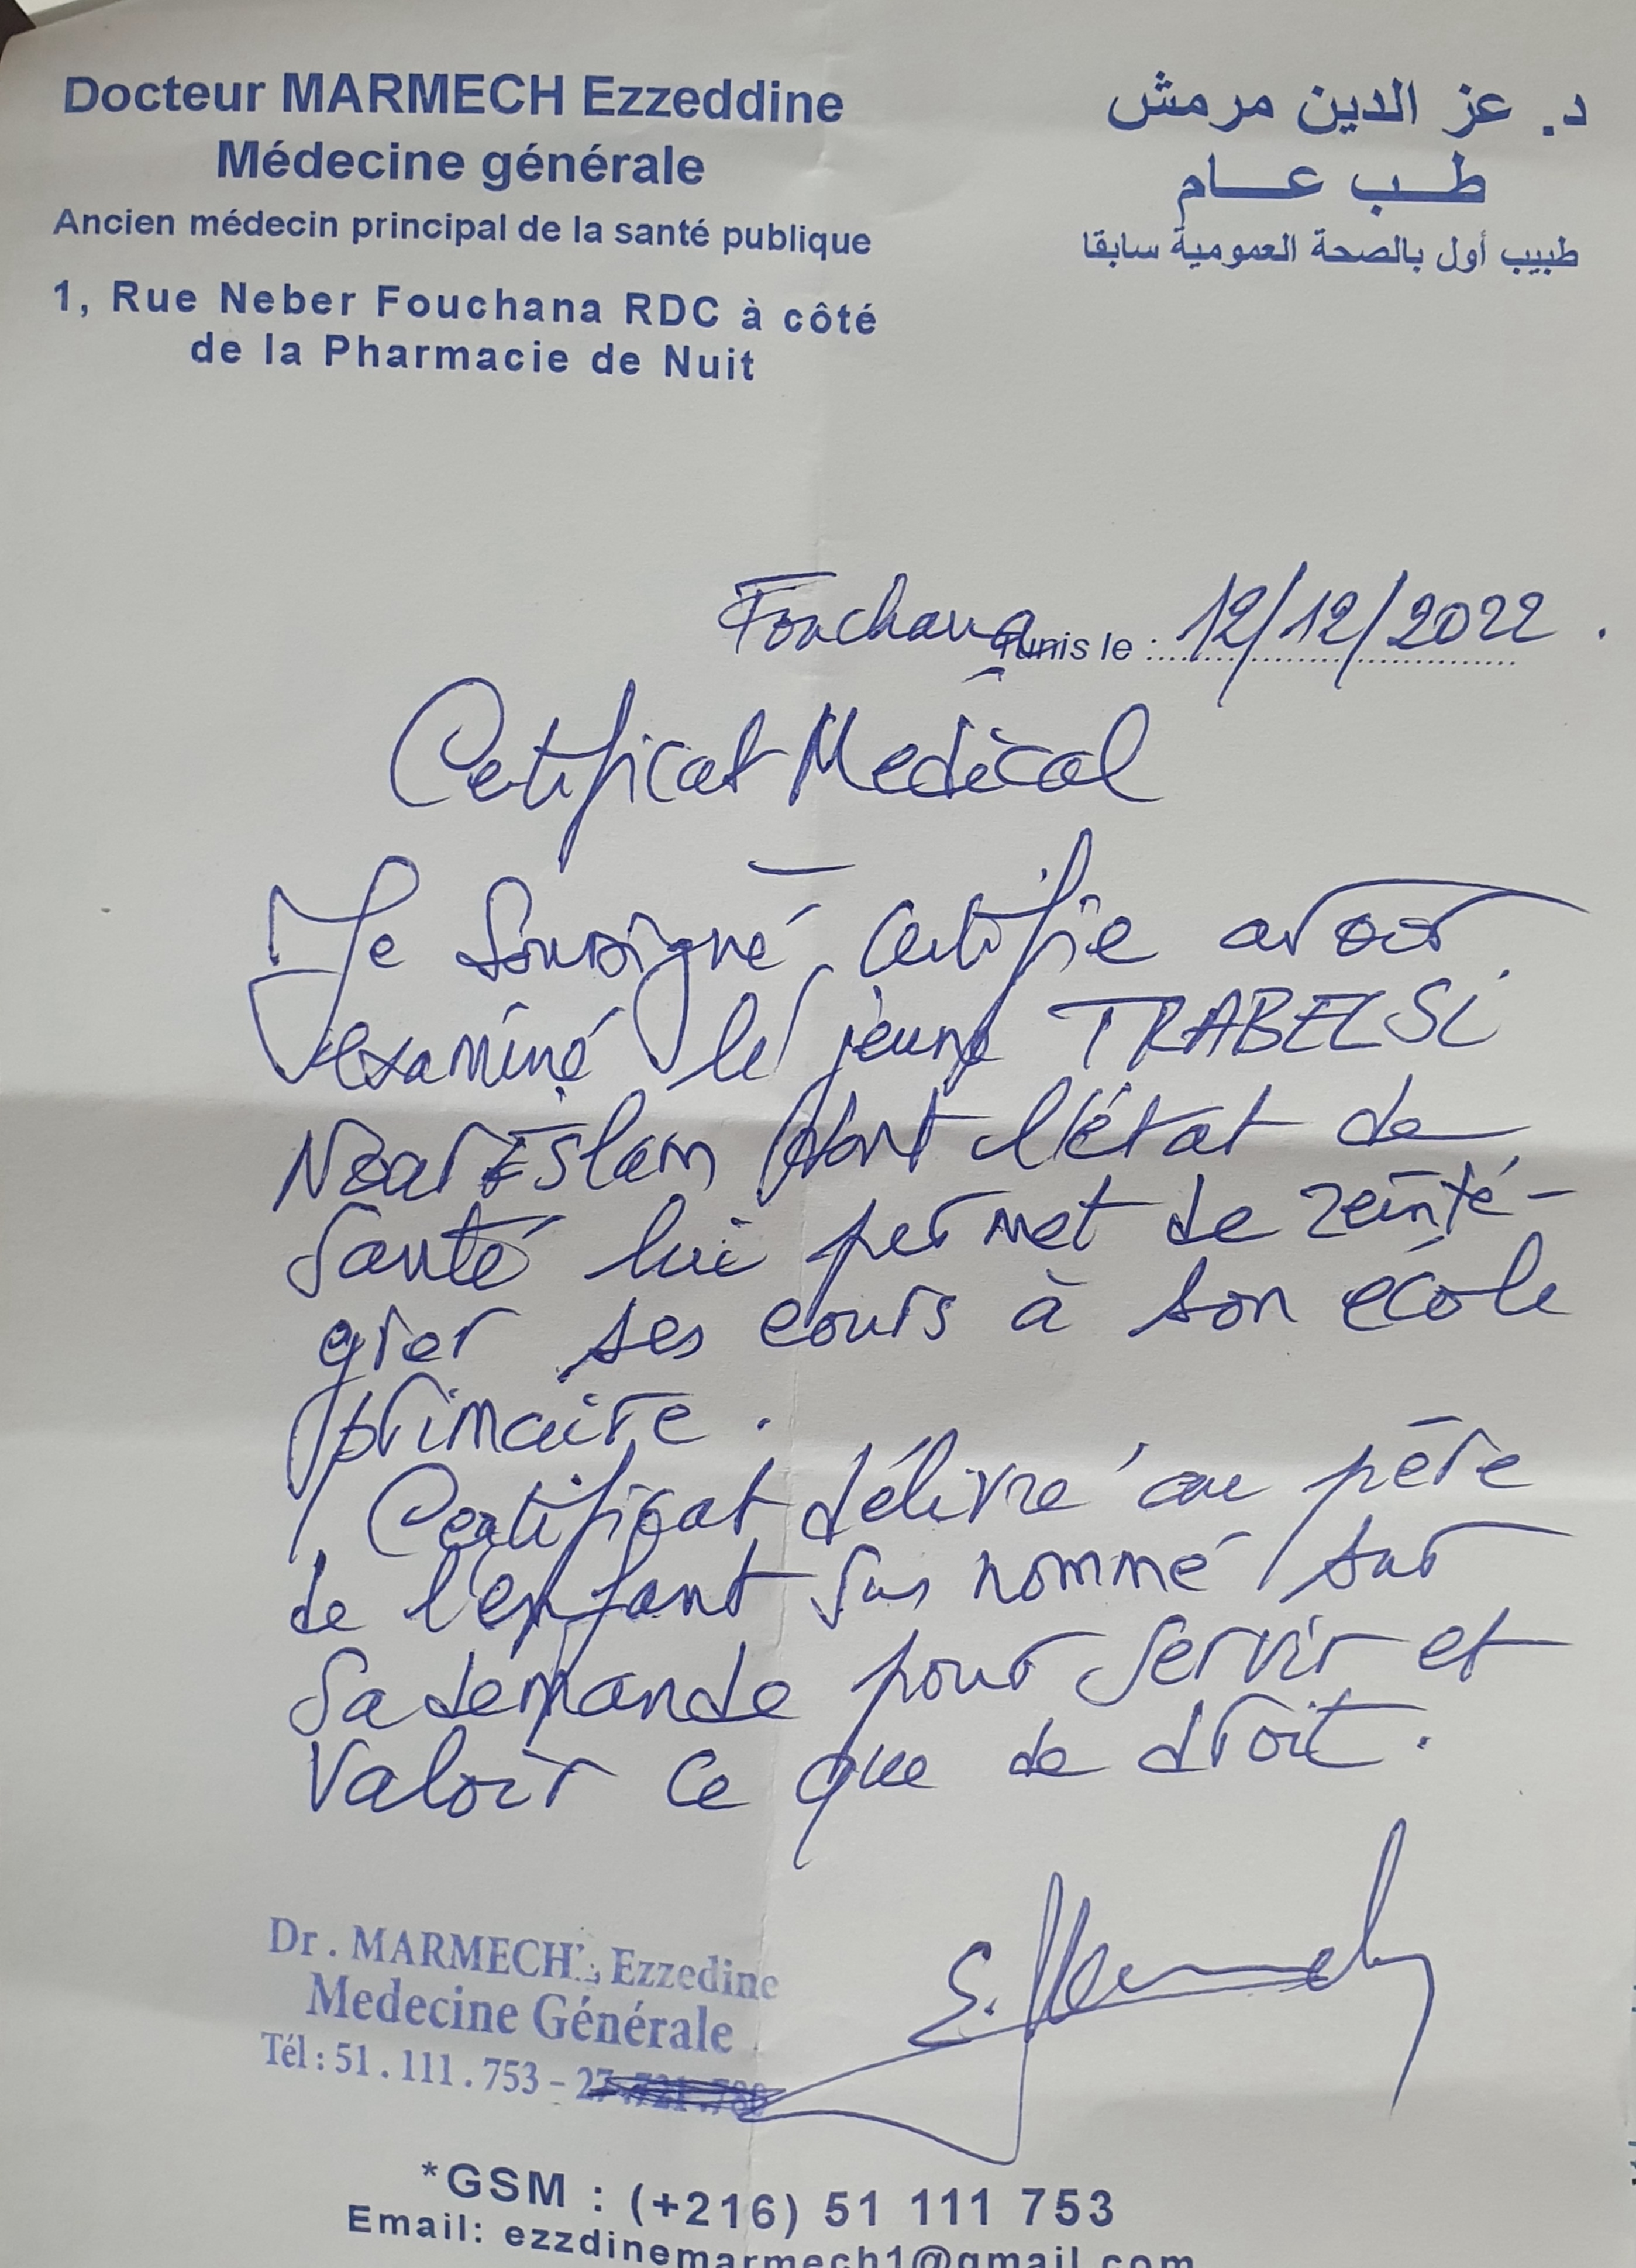 Docteur MARMECH Ezzeddine
Médecine générale
Ancien médecin principal de la santé publique
1, Rue Neber Fouchana RDC à côté
de la Pharmacie de Nuit
د. عز الدين مرمش
طب عام
طبيب أول بالصحة العمومية سابقا
Fouchana Tunis le : 12/12/2022.
Cetificat Medical
Je Soussigné certifie avoir
examiné le jeune TRABELSi
Islam dont l'état de
Santé lui permet de reinté-
grer ses cours à son école
primaire.
Certificat délivré au père
de l'enfant Sus nommé sur
Sa demande pour Servir et
Valoir ce que de droit.
Dr. MARMECH Ezzedine
Medecine Générale
Tél : 51.111.753 -
*GSM : (+216) 51 111 753
Email: ezzdinemarmech1@gmail.com